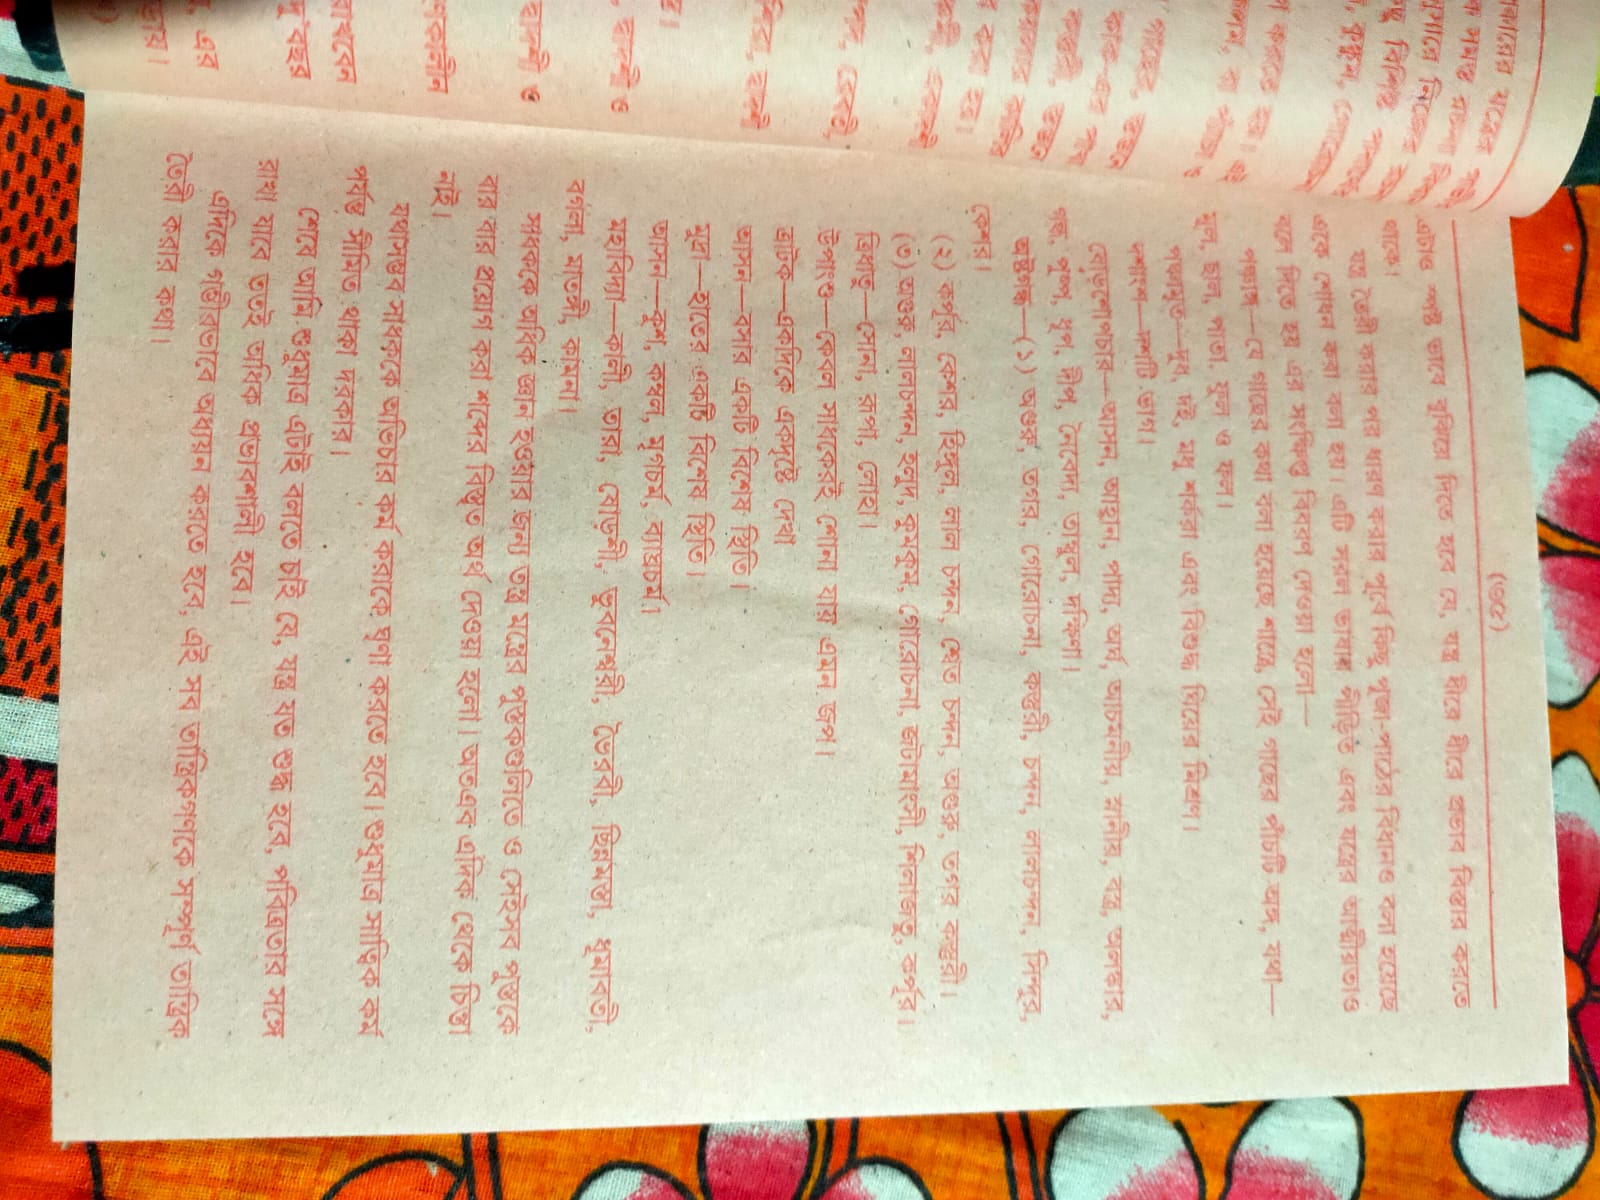 (৩৫)
এটাও স্পষ্ট ভাবে বুঝিয়ে দিতে হবে যে, যন্ত্র ধীরে ধীরে প্রভাব বিস্তার করতে
থাকে।
যন্ত্র তৈরী করার পর ধারণ করার পূর্বে কিছু পূজা-পাঠের বিধানও বলা হয়েছে
একে শোধন করা বলা হয়। এটি সরল ভাষায় পীড়িত এবং যন্ত্রের অধীষ্ঠাতাও
বলে দিতে হয় এর সংক্ষিপ্ত বিবরণ দেওয়া হলো—
পঞ্চাঙ্গ—যে গাছের কথা বলা হয়েছে শাস্ত্রে, সেই গাছের পাঁচটি অঙ্গ, যথা—
মূল, ছাল, পাতা, ফুল ও ফল।
পঞ্চামৃত—দুধ, দই, মধু শর্করা এবং বিশুদ্ধ ঘিয়ের মিশ্রণ।
দশাংশ—দশটি ভাগ।
ষোড়শোপচার—আসন, আহ্বান, পাদ্য, অর্ঘ, আচমনীয়, স্নানীয়, বস্ত্র, অলঙ্কার,
গন্ধ, পুষ্প, ধূপ, দীপ, নৈবেদ্য, তাম্বুল, দক্ষিণা।
অষ্টগন্ধ—(১) অগুরু, তগর, গোরোচনা, কস্তুরী, চন্দন, লালচন্দন, সিন্দুর,
কেশর।
(২) কর্পূর, কেশর, হিঙ্গুল, লাল চন্দন, শ্বেত চন্দন, অগুরু, তগর কস্তুরী।
(৩) অগুরু, লালচন্দন, হলুদ, কুমকুম, গোরোচনা, জটামাংসী, শিলাজতু, কর্পূর।
ত্রিধাতু—সোনা, রূপা, লোহা।
উপাংশু—কেবল সাধকেরই শোনা যায় এমন জপ।
ত্রাটক—একদিকে একদৃষ্টে দেখা
আসন—বসার একটি বিশেষ স্থিতি।
মুদ্রা—হাতের একটি বিশেষ স্থিতি।
আসন—কুশ, কম্বল, মৃগচর্ম, ব্যাঘ্রচর্ম।
মহাবিদ্যা—কালী, তারা, ষোড়শী, ভুবনেশ্বরী, ভৈরবী, ছিন্নমস্তা, ধূমাবতী,
বগলা, মাতঙ্গী, কামলা।
সাধককে অধিক জ্ঞান হওয়ার জন্য তন্ত্র মন্ত্রের পুস্তকগুলিতে ও সেইসব পুস্তকে
বার বার প্রয়োগ করা শব্দের বিস্তৃত অর্থ দেওয়া হলো। অতএব এদিক থেকে চিন্তা
নাই।
যথাসম্ভব সাধককে অভিচার কর্ম করাকে ঘৃণা করতে হবে। শুধুমাত্র সাত্ত্বিক কর্ম
পর্যন্ত সীমিত থাকা দরকার।
শেষে আমি শুধুমাত্র এটাই বলতে চাই যে, যন্ত্র যত শুদ্ধ হবে, পবিত্রতার সঙ্গে
রাখা যাবে ততই অধিক প্রভাবশালী হবে।
এদিকে গভীরভাবে অধ্যয়ন করতে হবে, এই সব তান্ত্রিকগণকে সম্পূর্ণ তান্ত্রিক
তৈরী করার কথা।